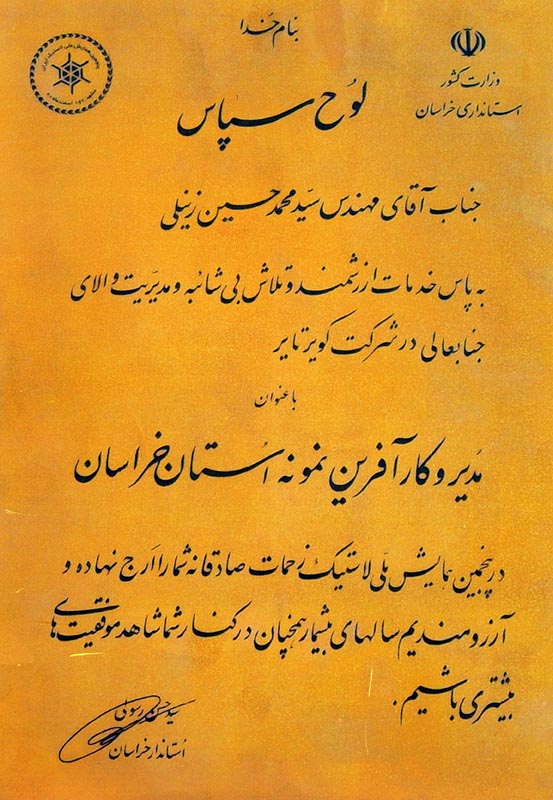 بنام خدا
وزارت کشور
استانداری خراسان
لوح سپاس
جناب آقای مهندس سید محمد حسین زینلی
به پاس خدمات ارزشمند و تلاش بی شائبه و مدیریت والای
جنابعالی در شرکت کویر تایر
با عنوان
مدیر و کارآفرین نمونه استان خراسان
در پنجمین همایش ملی لاستیک زحمات صادقانه شما را ارج نهاده و
آرزومندیم سالهای بیشمار همچنان در کنار شما شاهد موفقیت های
بیشتری باشیم.
سید حسن رسولی
استاندار خراسان